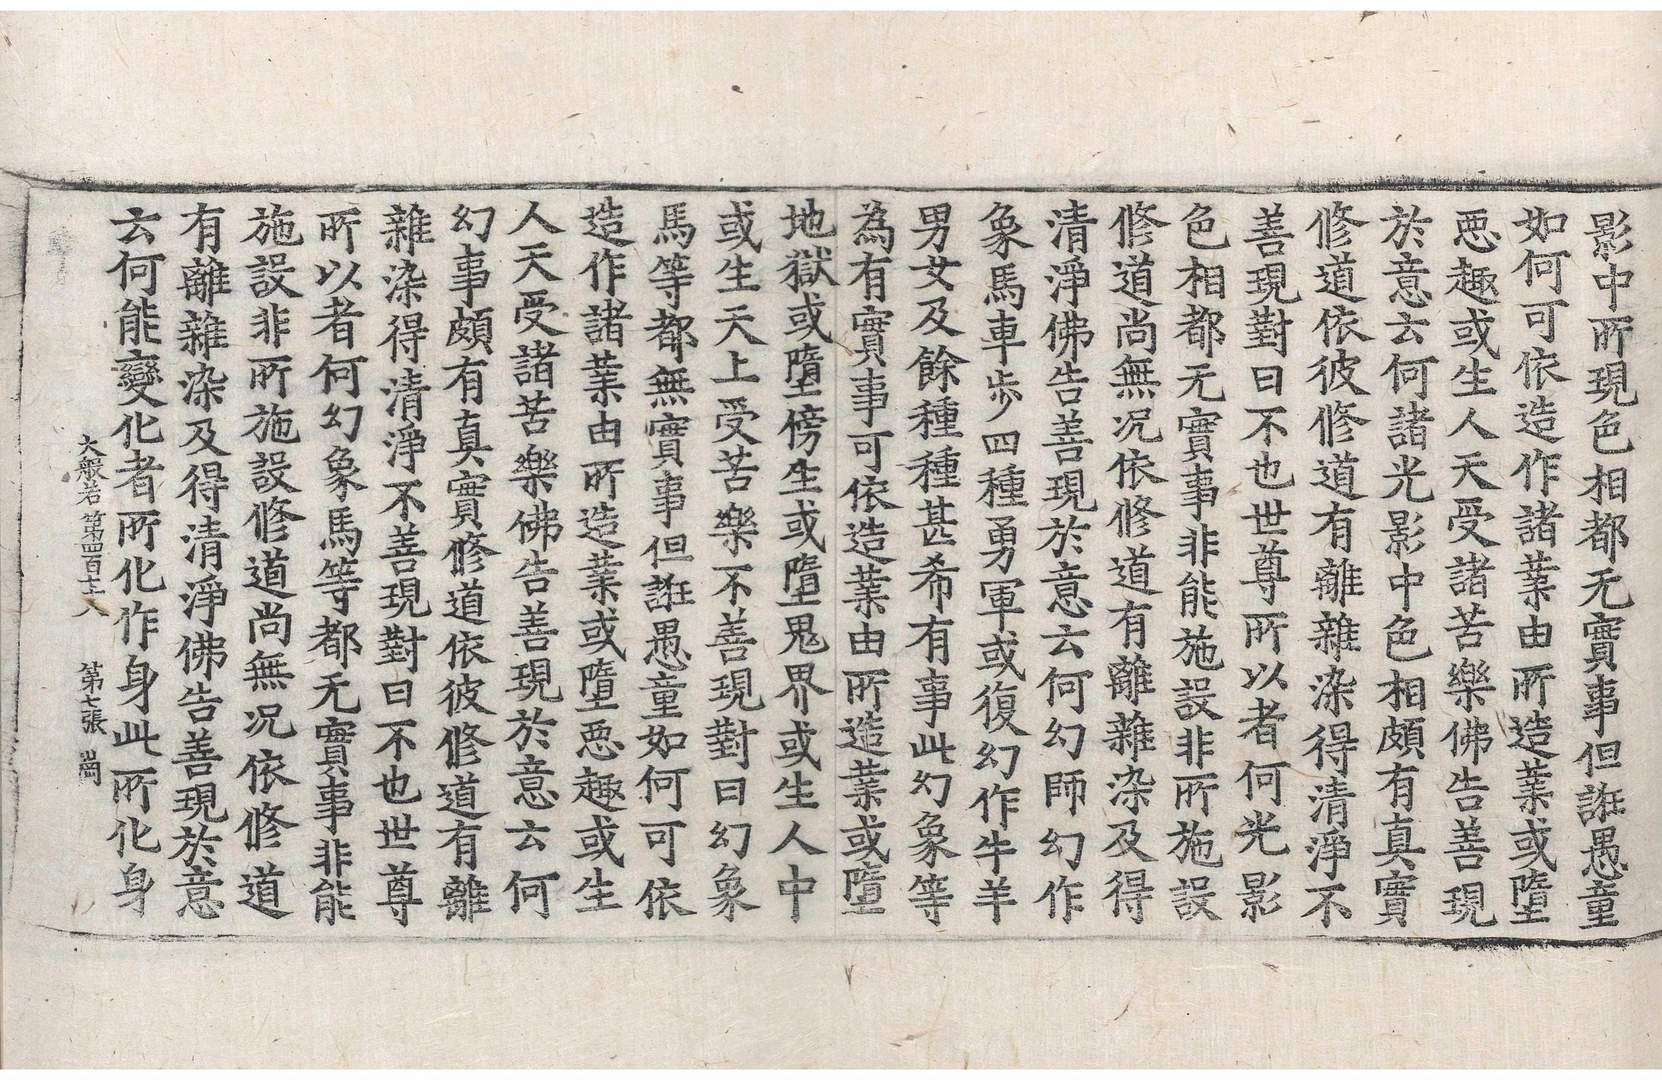 影中所現色相都无實事但誑愚童
如何可依造作諸業由所造業或墮
惡趣或生人天受諸苦樂佛告善現
於意云何諸光影中色相頗有真實
修道依彼修道有離雜染得清淨不
善現對曰不也世尊所以者何光影
色相都无實事非能施設非所施設
修道尚無况依修道有離雜染及得
清淨佛告善現於意云何幻師幻作
象馬車步四種勇軍或復幻作牛羊
男女及餘種種甚希有事此幻象等
為有實事可依造業由所造業或墮
地獄或墮傍生或墮鬼界或生人中
或生天上受苦樂不善現對曰幻象
馬等都無實事但誑愚童如何可依
造作諸業由所造業或墮惡趣或生
人天受諸苦樂佛告善現於意云何
幻事頗有真實修道依彼修道有離
雜染得清淨不善現對曰不也世尊
所以者何幻象馬等都无實事非能
施設非所施設修道尚無况依修道
有離雜染及得清淨佛告善現於意
云何能變化者所化作身此所化身
大般若 第四百七十八 第七張 崗